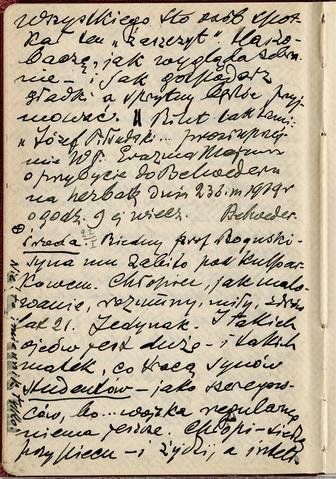 wszystkiego sto osób spot-
kał ten „zaszczyt". Da zo-
baczę, jak wygląda zebra-
nie — i jak gospodarz
gładki a sprytny będzie przyj-
mować. Bilet taki
„Józef Piłsudski... prosi
WP. Erazma Majewskiego
o przybycie do Belwederu
na herbatę dnia 23 b. m 1919 r
o godz. 9 ej wiecz. Belweder.
Środa 22/I Biedny prof Rogoński
syna mu zabito pod Kulpar-
kowem. Chłopiec, jak malo-
wanie, rozumny, miły,
lat 21. Jedynak. I takich
ojców jest dużo — i takich
matek, co tracą synów
studentów — jako szeregow-
ców, bo... wojska regularnego
niema jeszcze. Chłopi siedzą
przy piecu — i żydzi, a intel-